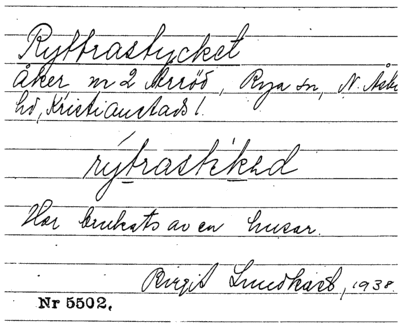 Ryttrastycket
Åker m 2 Arröd, Rya sn, N. Åsbo
hd, Kristianstads l.
rýtrastikəd
Har brukats av en husar.
Birgit Lundkvist, 1938.
Nr 5502.